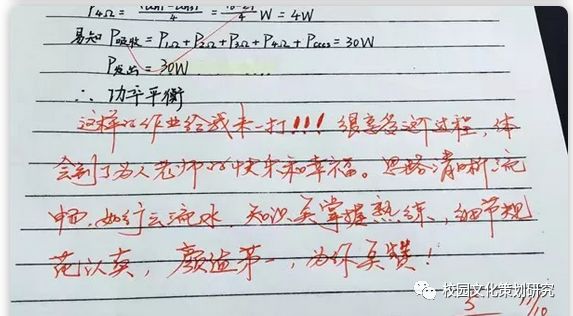 P4Ω = (…)²/4 = …/4 W = 4W
易知 P吸收 = P1Ω + P2Ω + P3Ω + P4Ω + Pcccs = 30W
P发出 = 30W
∴ 功率平衡
这样的作业给我来一打!!!很享受这个过程,体
会到了为人老师的快乐和幸福。思路清晰流
畅,如行云流水,知识点掌握熟练,细节规
范认真,颜值第一,为你点赞!
校园文化策划研究
5 11/10